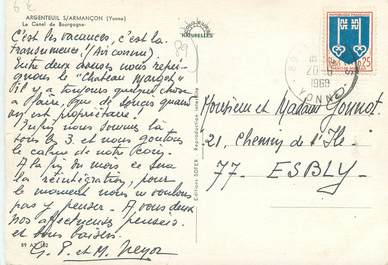 6 €
ARGENTEUIL S/ARMANÇON (Yonne)
Le Canal de Bourgogne
NATURELLES
89
C'est les vacances, c'est la
Transumence! (Air connu).
Entre deux averses nous
le "Château Margot".
Il y a toujours quelque chose
à faire, que de soucis quand
on est propriétaire!
Enfin nous sommes là
tous les 3 et nous goûtons
le calme de notre coin.
A la fin du mois ce sera
la réintégration, pour
le moment nous ne voulons
pas y penser. A vous deux
nos affectueuses pensées
et bons baisers.
G. P. et M.
89
Editions SOFER
20-6
1969
YONNE
0,25
Monsieur et Madame Jonnot
21, Chemin de l'Ile
77- ESBLY